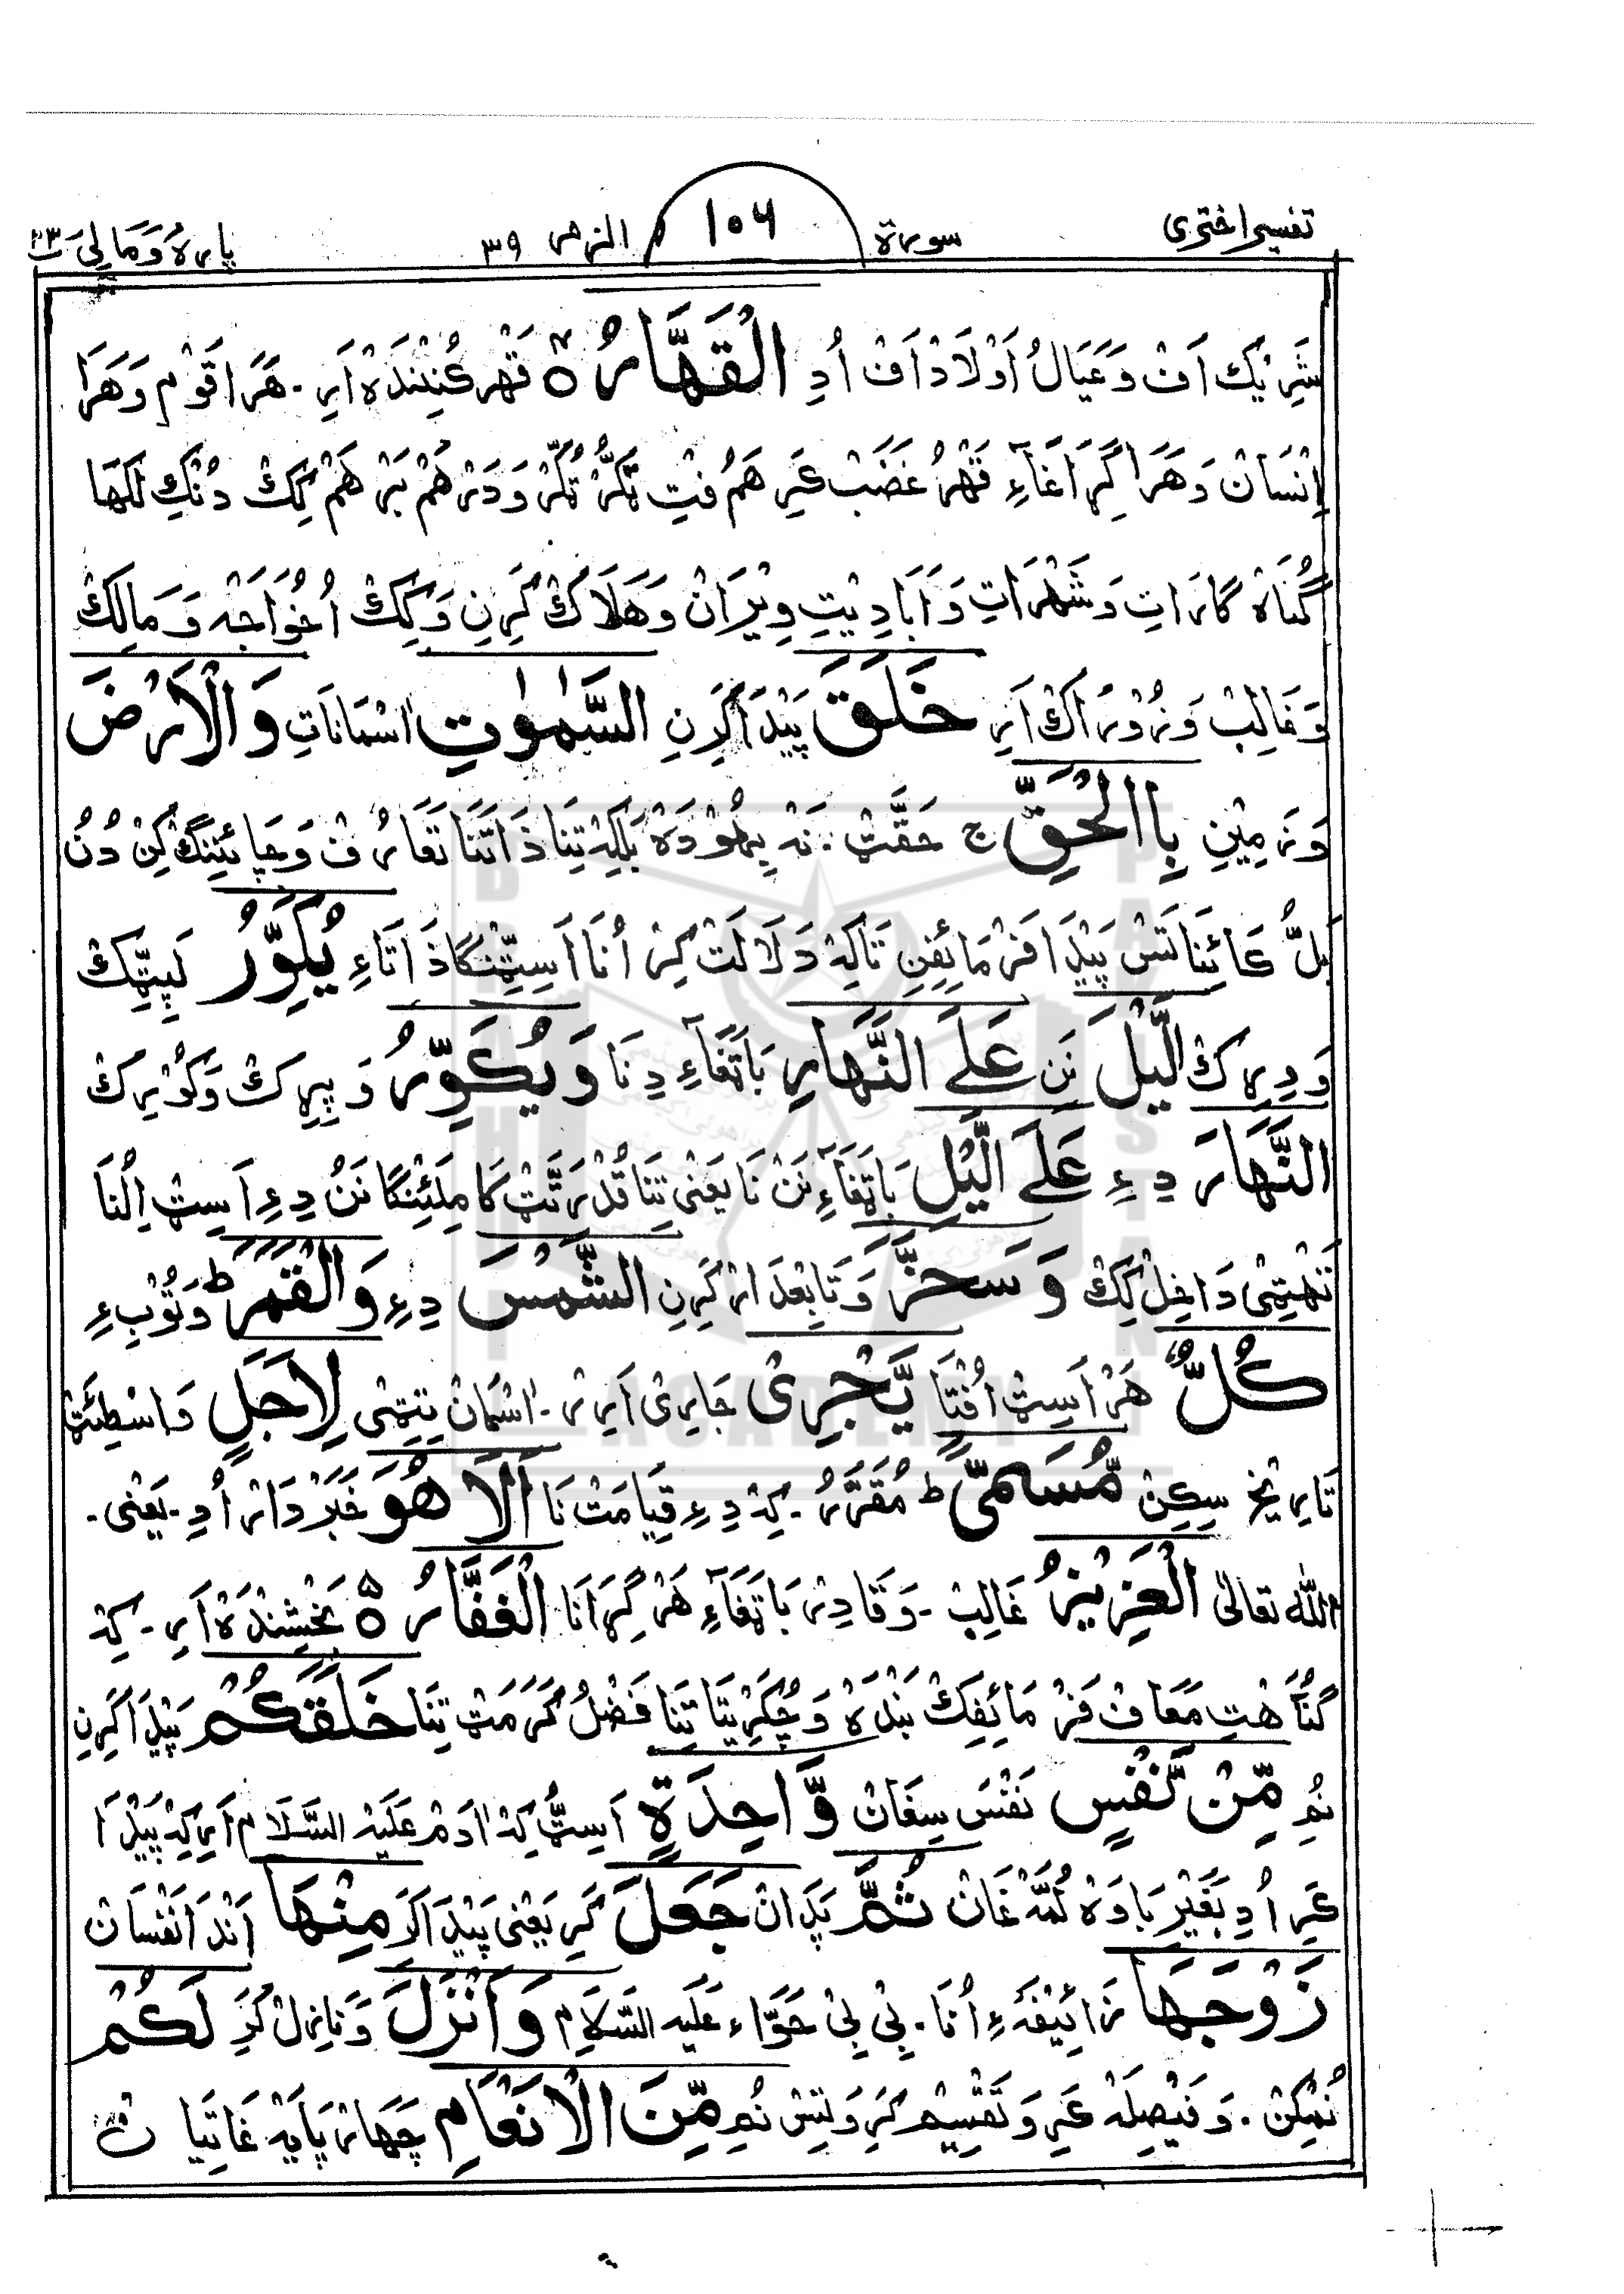 تفسیر اختری سورة ۱۰۶ الزمر ۳۹ پارهُ وَمَالِیَ ۲۳
شَرِیْک اَفْ وَعَیَالُ اَوْلَادْ اَفْ اُدِ الْقَهَّارُ ۴ قَهْر کُنِنْدَهْ اَرِ - هَرَا قَوْم وَهَرَا
اِنْسَانْ وَهَرَا گِرَاغَآءِ قَهْرُ غَضَبْ کَرِ هَمُ فْتِ تُکَّرْ تُکَّرْ وَدَرْهَمْ بَرْهَمْ کِکْ دُنْکِ لَکَهَا
گُنَاهْ گارَاتِ وَشَهْرَاتِ وَآبَادِیْتِ وِیْرَانْ وَهَلَاکْ کَرِنِ وَکِکْ اُ خُوَاجَه وَمَالِکْ
وَغَالِبْ وَزُوْرَاکْ اَرِ خَلَقَ پَیْدَا کَرِنِ السَّمٰوٰتِ اسْمَانَاتِ وَالْاَرْضَ
وَزَمِیْنِ بِاالْحَقِّ ج حَقَّتْ . نَه بِیهُوْدَهْ بَلْکِهْ تِنَا ذَاتَنَا تَعَارُفْ وَچَائِنْنِگْکِنْ دُنُ
بَلُّ کَائِنَاتَسْ پَیْدَا فَرْمَائِفِنِ تَاکِهْ دَلَالَتْ کِرْ اُنَا اَسِٹِّنْگَا ذَاتَاءِ یُکَوِّرُ لَپِیٹِّکْ
وَدِرِکْ الَّیْلَ نَن عَلَے النَّهَارِ بَاتَغَآءِ دِنَا وَیُکَوِّرُ وَپِیرِکْ وَکُوْرِکْ
النَّهَارَ دِءِ عَلَے الَّیْلِ بَاتَغَآءِ نَنْ نَا یَعْنٖی تِنَا قُدْرَتَّتْ کَا مِلَئِنْگَا نَنُ دِءِ اَسِٹْ اِلْنَا
نَهٹِٹٖی دَاخِلْ کِکْ وَسَخَّرَ وَتَابِعْدَارْ کَرِنِ الشَّمْسَ دِءِ وَالْقَمَرَ ط وَتُوْبِءِ
کُلٌّ هَرْ اَسِٹْ اُفْتَا یَّجْرِیْ جَارِیْ اَرِرْ - اسْمَانْ تِٹِٹٖی لِاَجَلٍ وَاسْطِئَٹْ
تَارِیْخ سِکِنْ مُّسَمًّی ط مُقَرَّرُ - کِهْ دِءِ قِیَامَتْ نَا اَلَا هُوَ خَبَرْدَارْ اُدِ - یَعْنٖی -
اللّٰه تعالیٰ الْعَزِیْزُ غَالِبْ - وَقَادِرْ بَاتَغَآءِ هَرْ گِرَانَا الْغَفَّارُ ۵ بَخْشِنْدَهْ اَرِ - کِهْ
گُنَاهْتِ مَعَافْ فَرْمَائِفِکْ بَنْدَهْ وَچِکَرِیْتَا تِنَا فَضْلُ کَرَمَتْ تِنَا خَلَقَکُمْ پَیْدَا کَرِنِ
نُمِ مِّنْ نَّفْسٍ نَفْسَ سِغَانْ وَّاحِدَةٍ اَسِٹُّ کِهْ اٰدَمْ عَلَیْهِ السَّلَام اَرِ کِهْ پَیْدَا
کَرِ اُدِ بَغَیْرِ بَاوَهْ لُمَّهْ غَانْ ثُمَّ پَدَانْ جَعَلَ کَرِ یَعْنٖی پَیْدَا کَرَ مِنْهَا اَنْدَا نَفْسَانْ
زَوْجَهَا زَائِیْفَهْءِ اُنَا . بِیْ بِیْ حَوَّاء عَلَیْهِ السَّلَام وَاَنْزَلَ وَنَازِلْ کَرِ لَکُمْ
نُمْکِنْ . وَفَیْصِلَهْ کَرِ وَتَقْسِیْم کَرَ وَتِسْ نُمِ مِّنَ الْاَنْعَامِ چَهَارْ پَایَهْ غَاتِیَا
BRAHUI ACADEMY PAKISTAN